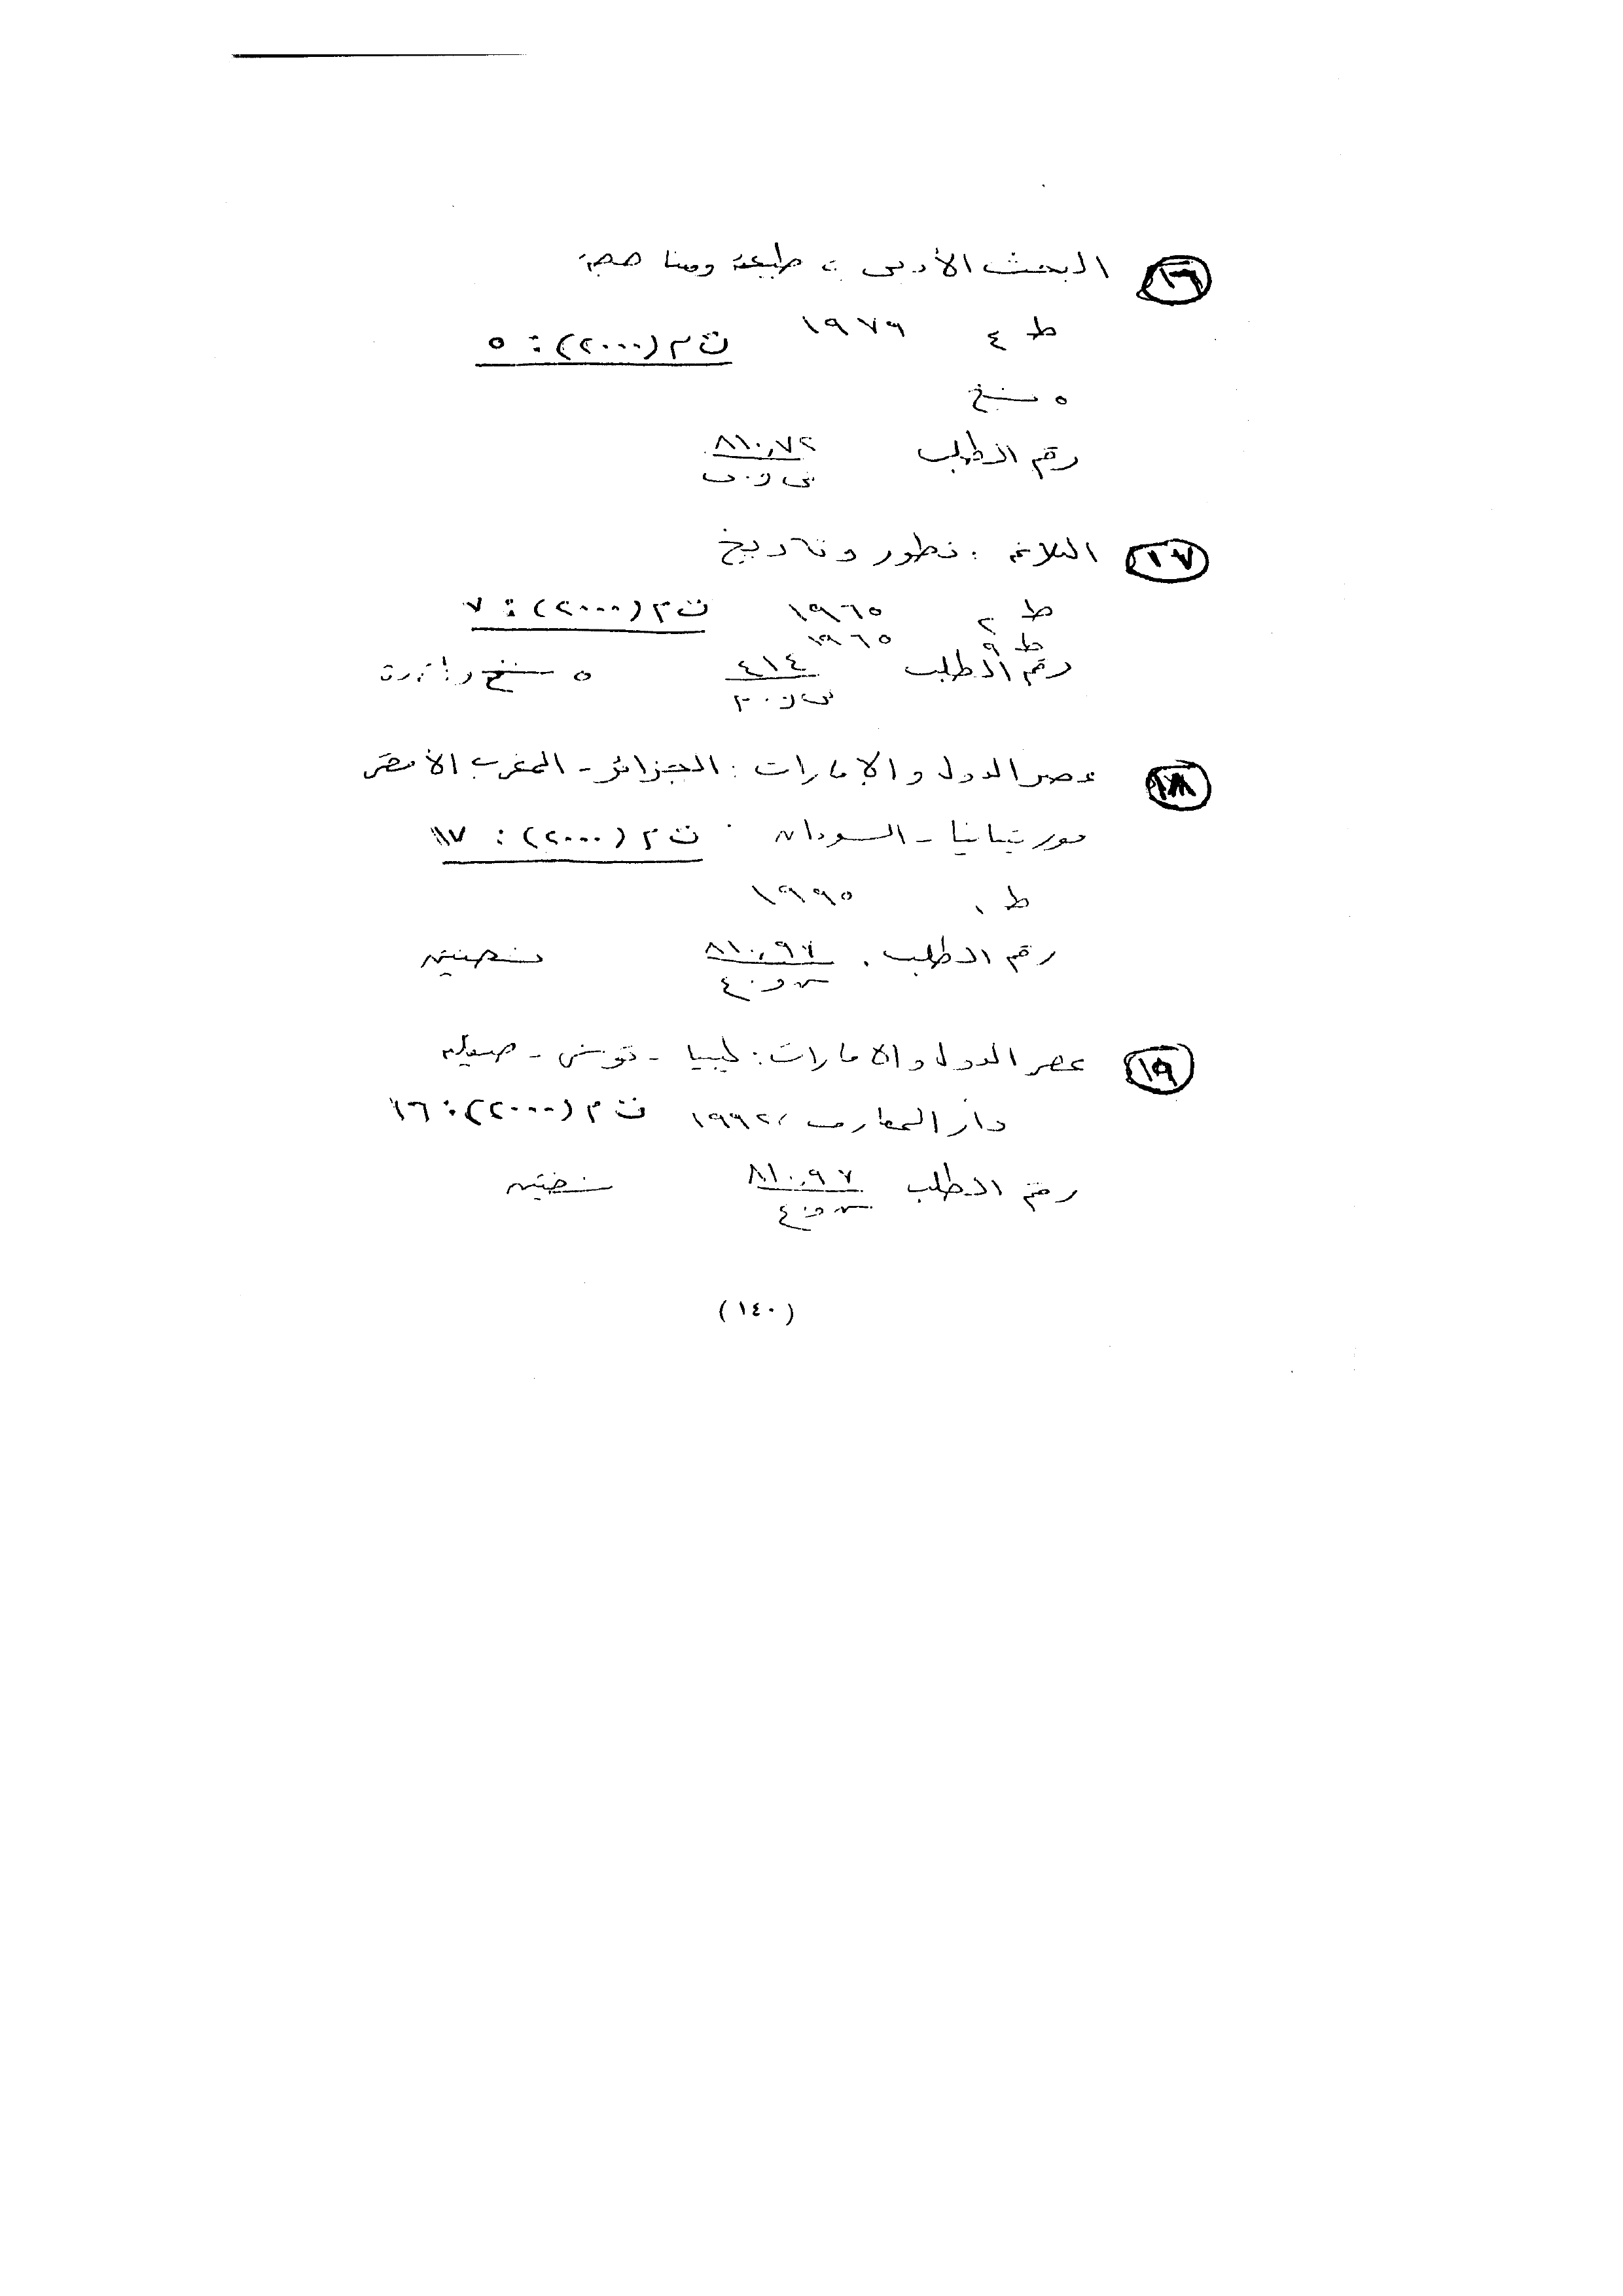 ١٦ البحث الأدبى : طبيعته ومناهجه
ط ٤ ١٩٧٩ ت م (٢٠٠٠) : ٥
٥ نسخ
رقم الطلب ٨١٠,٧٢
١٧ البلاغة : تطور وتاريخ
ط ٢ ١٩٦٥ ت م (٢٠٠٠) : ٧
ط ٩ ١٩٦٥
رقم الطلب ٤١٤ ٥ نسخ
١٨ عصر الدول والإمارات : الجزائر - المغرب الأقصى
موريتانيا - السودان ت م (٢٠٠٠) : ١٧
ط ١ ١٩٩٥
رقم الطلب ٨١٠,٩٧ نسختين
س و . ع
١٩ عصر الدول والامارات : ليبيا - تونس - صقلية
دار المعارف ١٩٩٢ ت م (٢٠٠٠) : ١٦
رقم الطلب ٨١٠,٩٧ نسختين
س و . ع
(١٤٠)